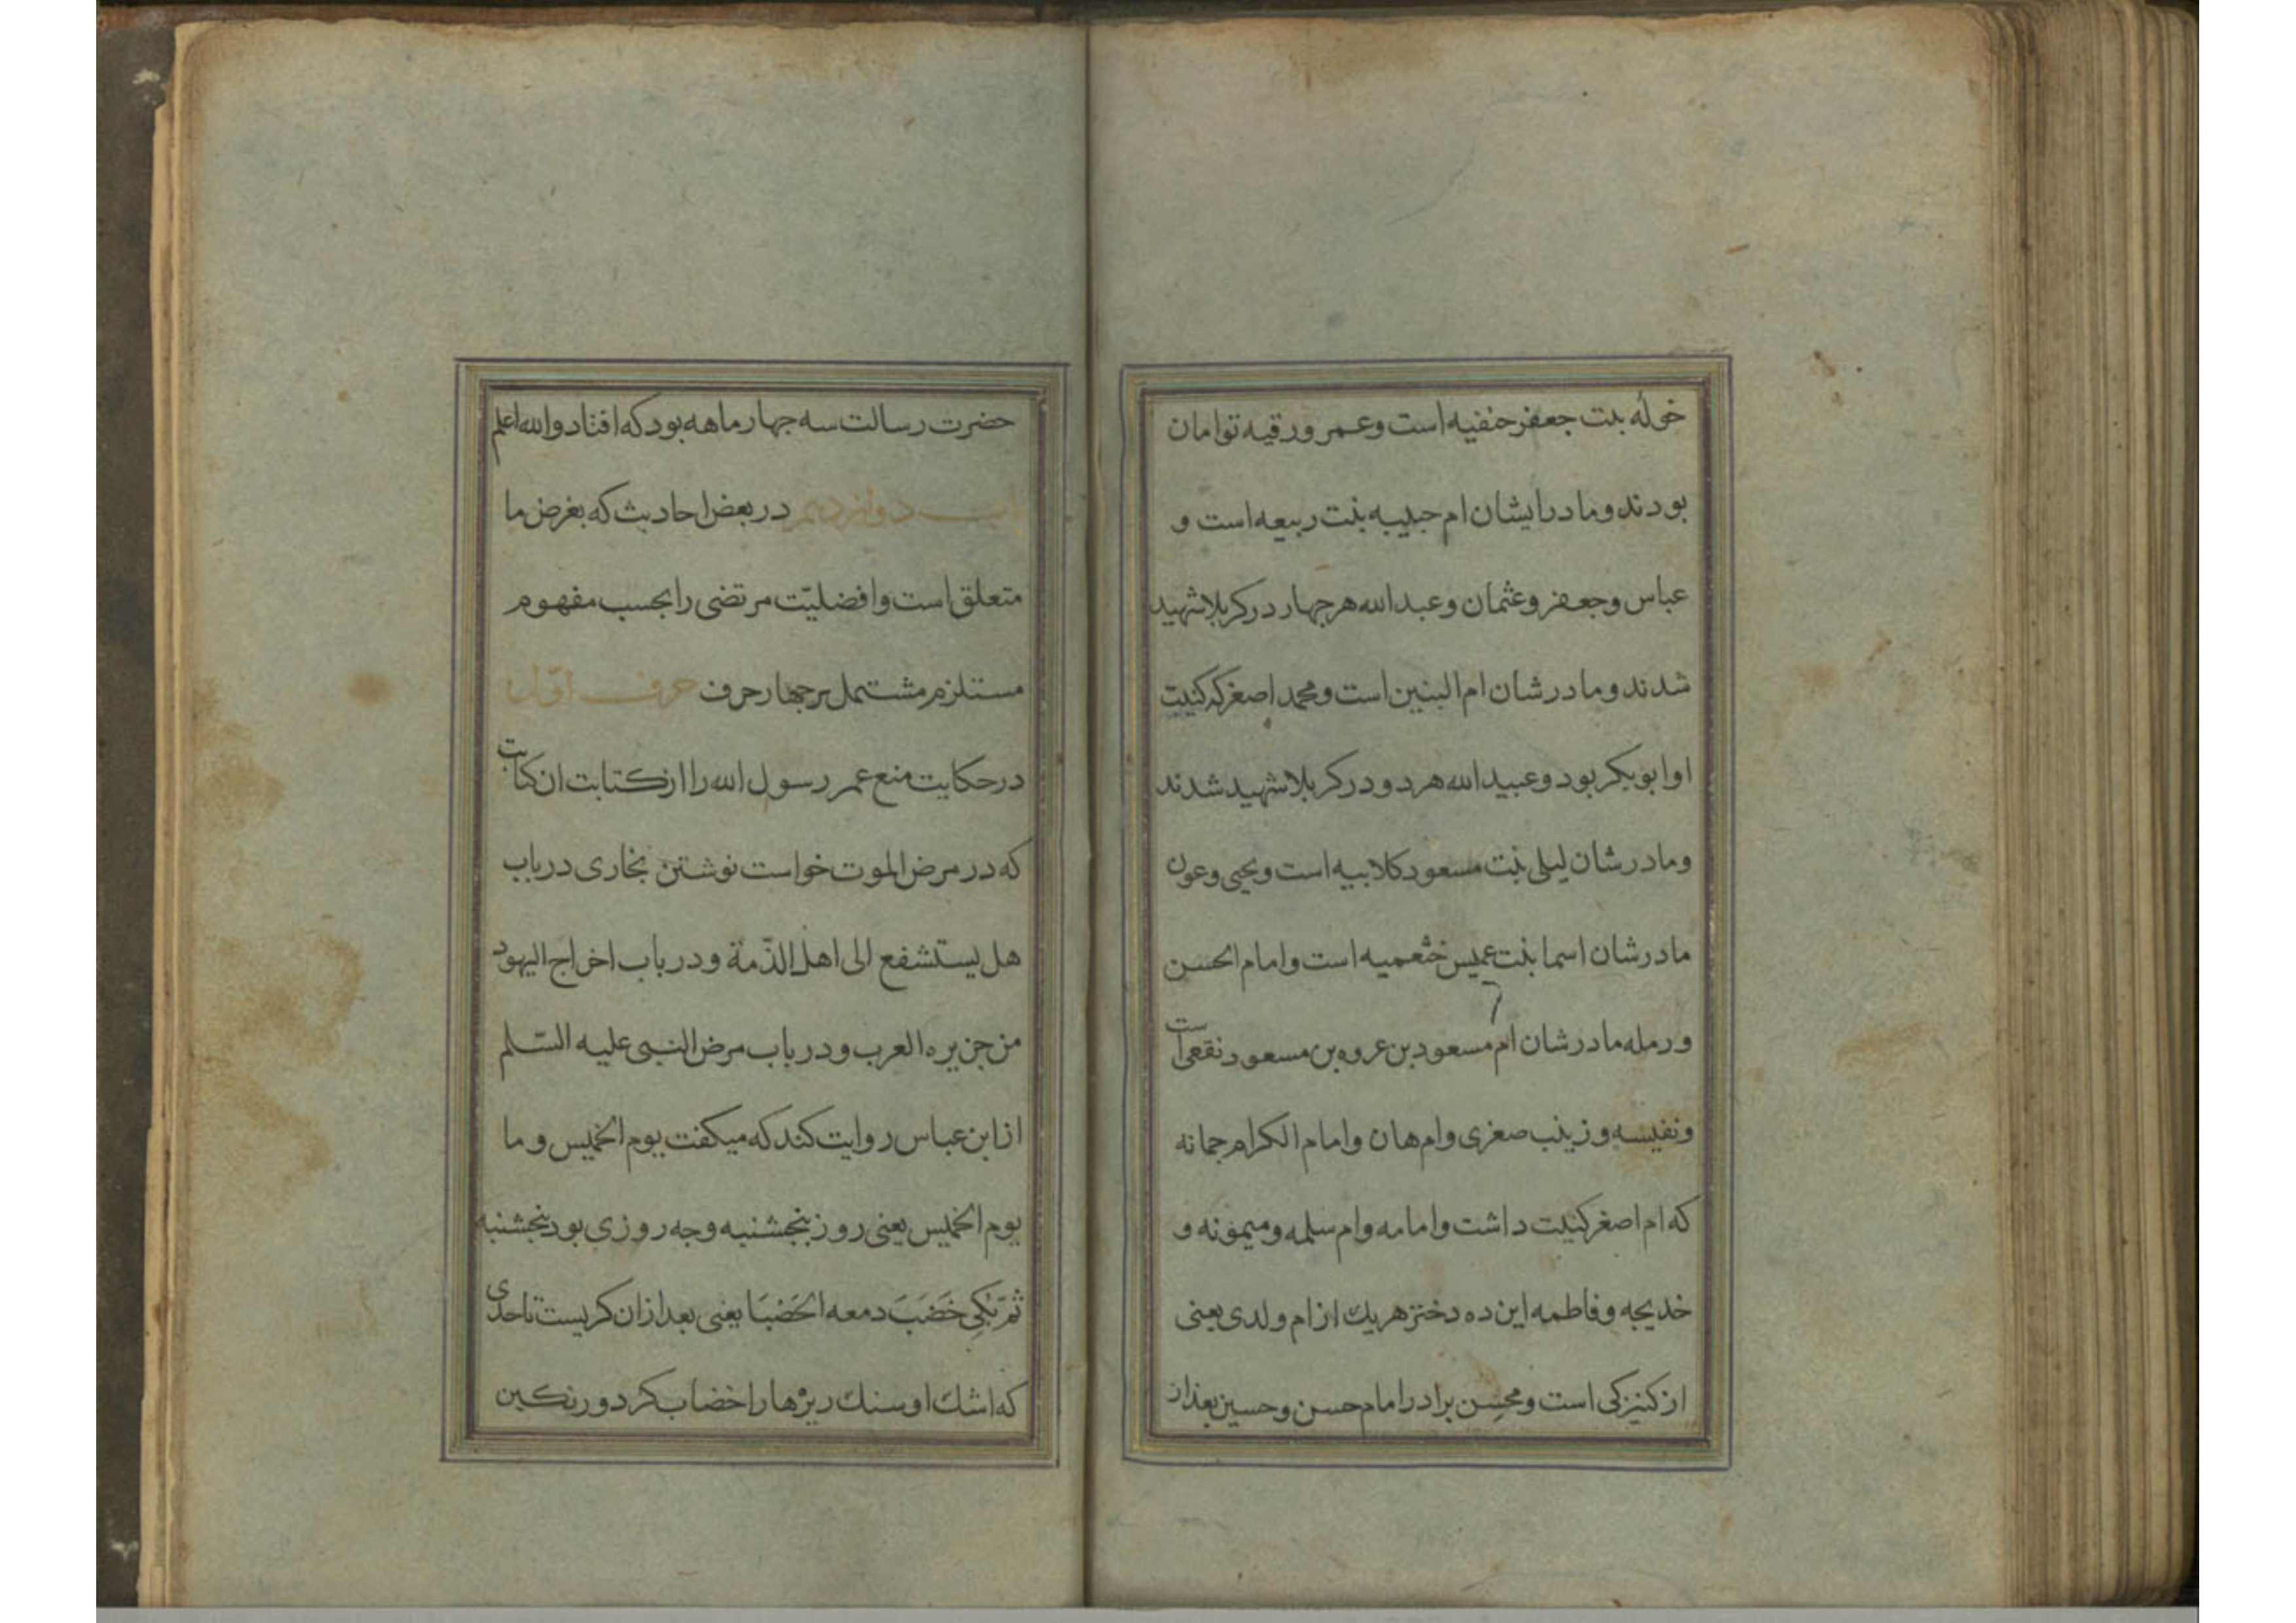 خوله بنت جعفر حنفیه است و عمر و رقیه توامان
بودند و مادر ایشان ام حبیبه بنت ربیعه است و
عباس و جعفر و عثمان و عبدالله هر جهار در کربلا شهید
شدند و مادرشان ام البنین است و محمد اصغر که کنیت
او ابوبکر بود و عبیدالله هر دو در کربلا شهید شدند
و مادرشان لیلی بنت مسعود کلابیه است و یحیی و عون
مادرشان اسما بنت عمیس خثعمیه است و امام الحسن
و رمله مادرشان ام مسعود بن عروه بن مسعود نقعی است
و نفیسه و زینب صغری و ام هان و امام الکرام جمانه
که ام اصغر کنیت داشت و امامه و ام سلمه و میمونه و
خدیجه و فاطمه این ده دختر هریك از ام ولدی یعنی
از کنیزکی است و محسِن برادر امام حسن و حسین بعد از
حضرت رسالت سه جهار ماهه بود که افتاد والله اعلم
باب دوازدهم در بعض احادیث که بغرض ما
متعلق است و افضلیّت مرتضی را بحسب مفهوم
مستلزم مشتمل بر جهار حرف حرف اوّل
در حکایت منع عمر رسول الله را از کتابت ان کتابت
که در مرض الموت خواست نوشتن بخاری در باب
هل یستشفع الی اهل الذّمة و در باب اخراج الیهود
من جزیره العرب و در باب مرض النبی علیه السّلم
از ابن عباس روایت کند که میکفت یوم الخمیس و ما
یوم الخمیس یعنی روز بنجشنبه و جه روزی بود بنجشنبه
ثمّ بکی خَضَبَ دمعه الحَضبَا یعنی بعد از ان کریست تا حدی
که اشك او سنك ریزها را خضاب کرد و رنکین